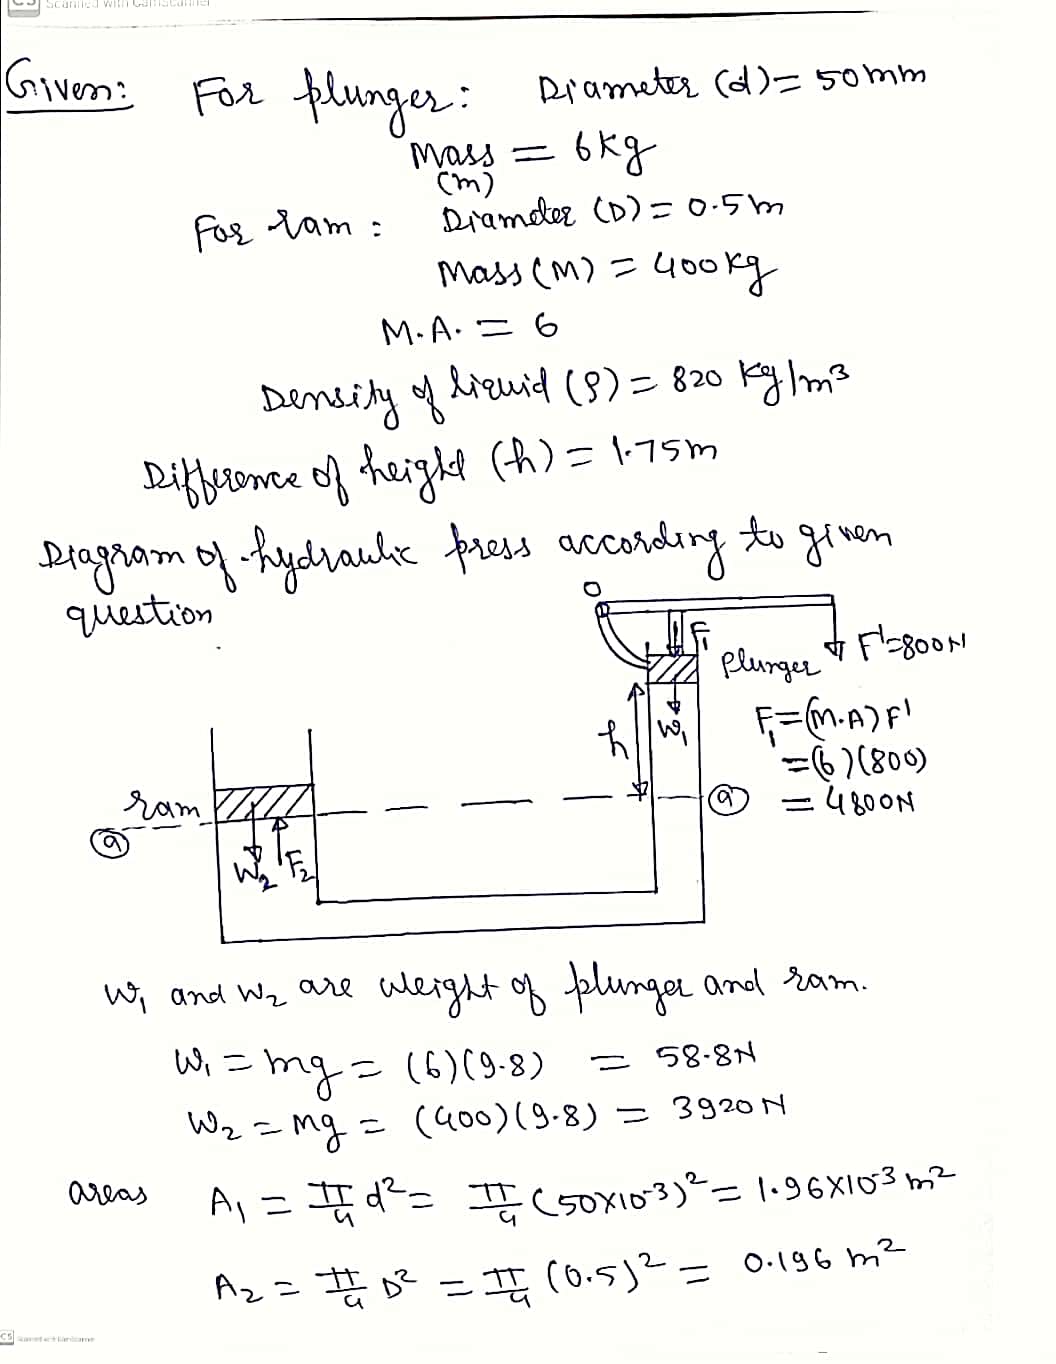 CS Scanned with CamScanner
Given: For plunger: Diameter (d) = 50mm
Mass = 6kg
(m)
For ram: Diameter (D) = 0.5m
Mass (M) = 400kg
M.A. = 6
Density of liquid (ρ) = 820 kg/m³
Difference of height (h) = 1.75m
Diagram of hydraulic press according to given
question
O
F₁
plunger F'=800N
h W₁ F₁=(M.A)F'
=(6)(800)
ram ⓐ = 4800N
ⓐ
W₂ F₂
W₁ and W₂ are weight of plunger and ram.
W₁ = mg = (6)(9.8) = 58.8N
W₂ = Mg = (400)(9.8) = 3920N
areas A₁ = π/4 d² = π/4 (50×10⁻³)² = 1.96×10⁻³ m²
A₂ = π/4 D² = π/4 (0.5)² = 0.196 m²
CS Scanned with CamScanner